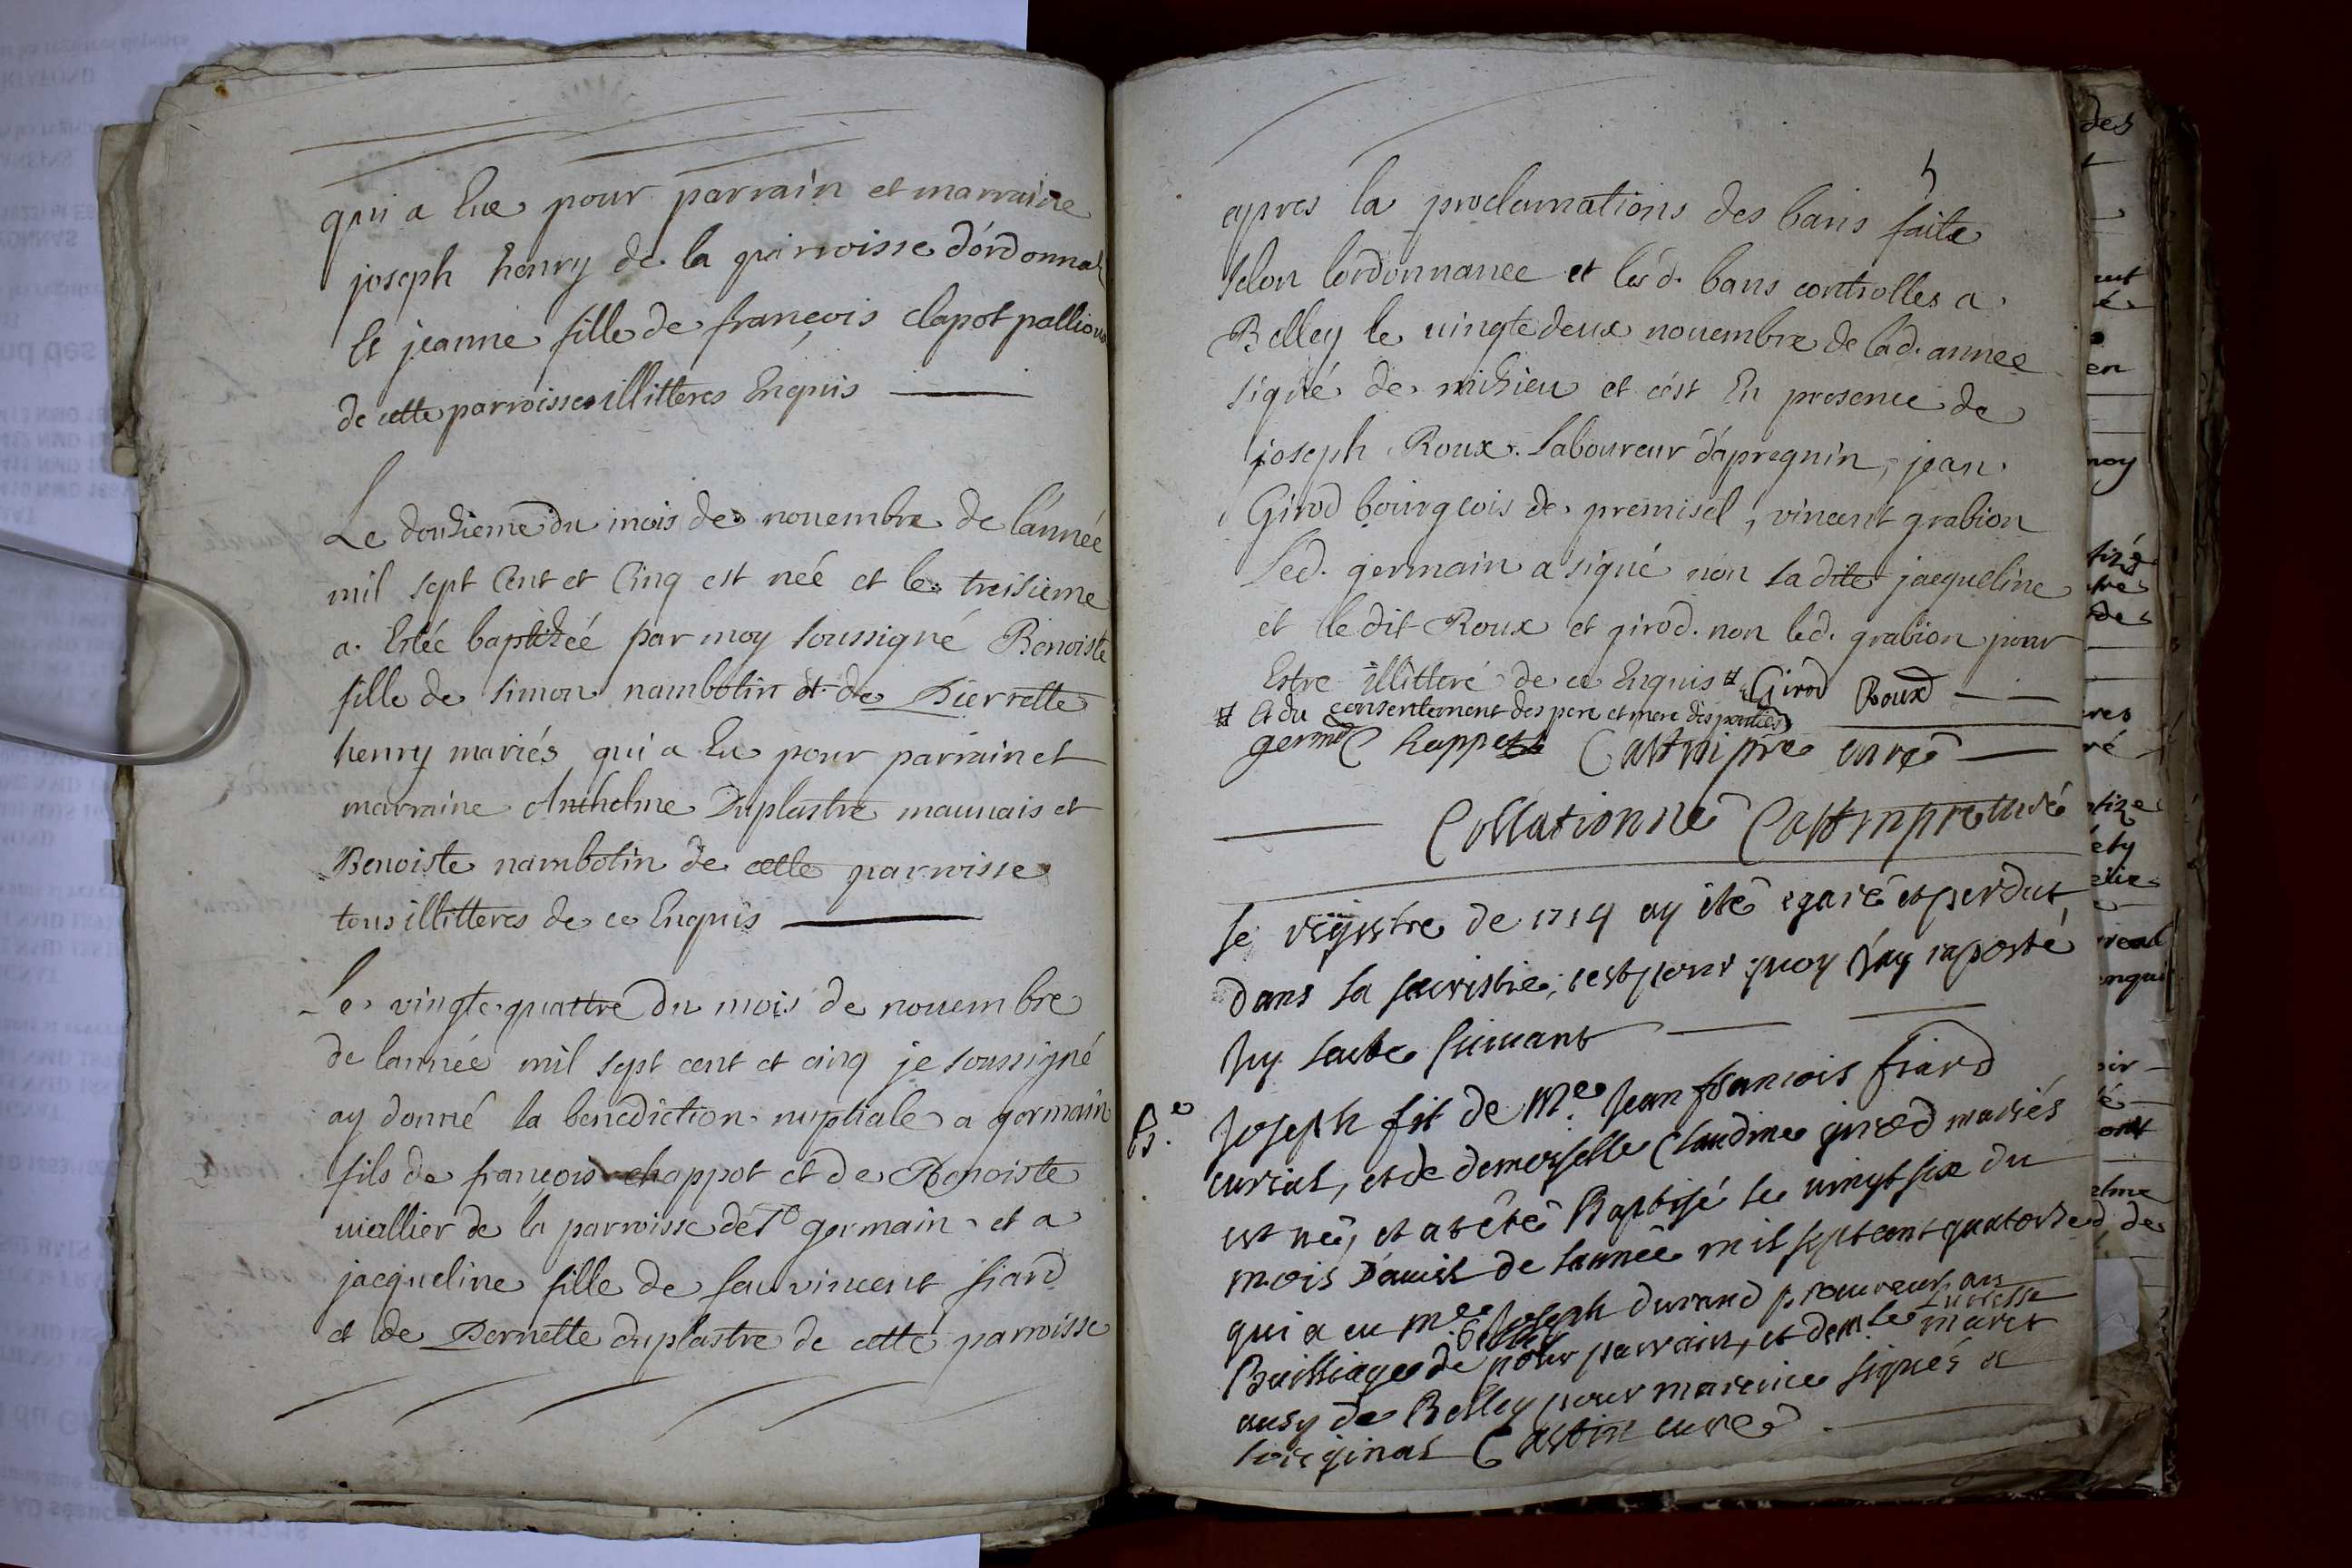 qui a Eue pour parrain et marraine
joseph henry de la parroisse d'ordonnat
Et jeanne fille de françois clapot
de cette parroisse illitteres Enquis
Le douzieme du mois de novembre de l'année
mil sept Cent et Cinq est née et le treisieme
a Estée baptizéé par moy soussigné Benoiste
fille de simon nambotin et de Pierrette
henry mariés qui a Eu pour parrain et
marraine Anthelme Duplastre mauuais et
Benoiste nambotin de cette parroisse
tous illitteres de ce Enquis
Le vingte quattre du mois de nouembre
de lannée mil sept cent et cinq je soussigné
ay donné la benediction nuptiale a germain
fils de françois chappot et de Benoiste
uiallier de la parroisse de St germain et a
jacqueline fille de feu vincent fiard
et de Pernette duplastre de cette parroisse
5
apres la proclamations des bans faite
selon lordonnance et lesd. bans controlles a
Belley le uingte deux nouembre de lad. annee
signé de mihieu et c'est En presence de
joseph Roux laboureur d'apregnin, jean
Girod bourgeois de premisel, vincent grabion
Led. germain a signé non ladite jacqueline
et le dit Roux et girod. non led. grabion pour
Estre illitteré de ce Enquis # Girod Roux
# Et du consentement des pere et mere des parties
germ Chappot Castin pre curé
Collationné Castin pre curé
le registre de 1714 ay été egaré et perdut
dans la sacristie, cest pour quoy j'ay raporté
Icy lacte suiuant
B.e Joseph fil de Me. Jean francois fiard
curial, et de demoiselle Claudine girod mariés
est né, et a été Baptisé le uingt six du
mois d'auril de lannée mil sept cent quatorze
qui a eu Me Joseph durand procureur au
Bailliage de Belley pour parrain, et demle Lucresse maret
ausy de Belley pour maraine signés a
loriginal Castin curé